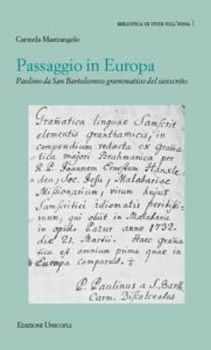 BIBLIOTECA DI STUDI SULL'INDIA 1
Carmela Mastrangelo
Passaggio in Europa
Paolino da San Bartolomeo grammatico del sanscrito
Gramatica linguae Samscrit
elementis granthamicis, in
compendium redacta ex grama
tica majori Brahmanica per
R. P. Joannem Ernestum Hanxle
den, Soc. Jesu, Malabariae
Missionarium, virum hujus
Samscritici idiomatis peritissi
mum, qui obiit in Malabaria
in opido Pazur anno 1732.
die 21. Martii. Haec grama
tica est omnium prima quae in
Europa comparuit. +
P. Paulinus a S. Barth.
Carm. Discalceatus
EDIZIONI UNICOPLI